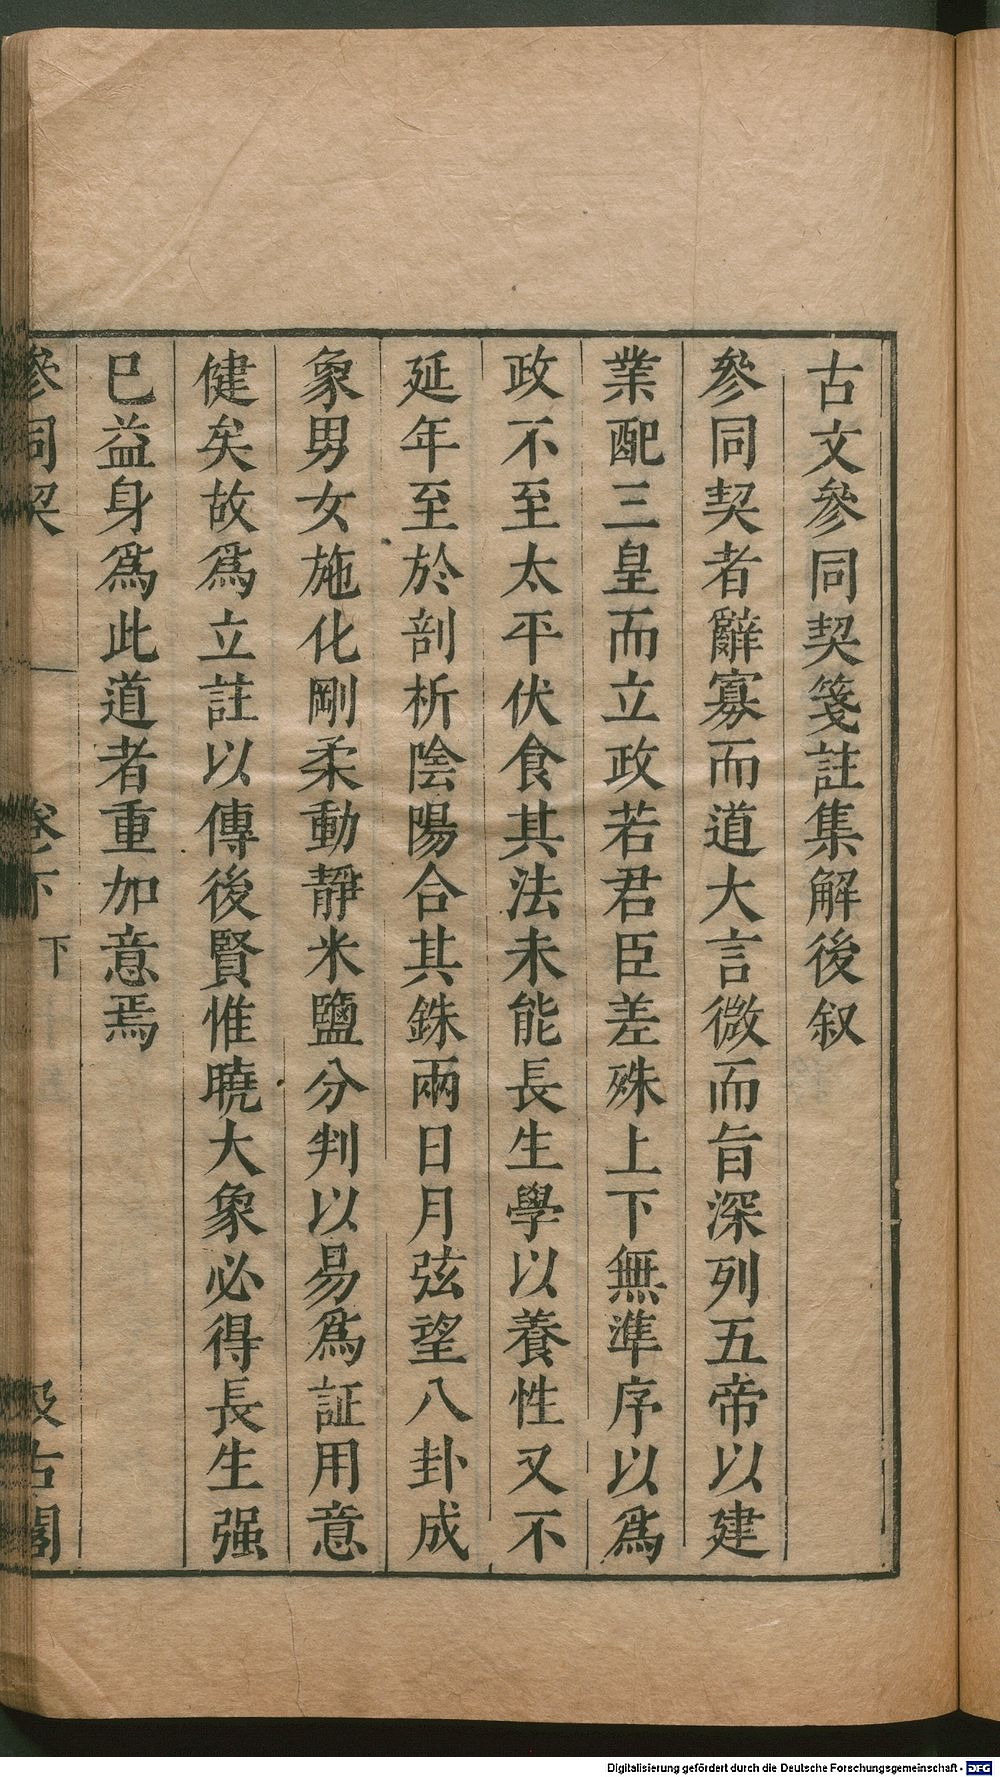 古文參同契箋註集解後叙
參同契者辭寡而道大言微而旨深列五帝以建
業配三皇而立政若君臣差殊上下無準序以爲
政不至太平伏食其法未能長生學以養性又不
延年至於剖析陰陽合其銖兩日月弦望八卦成
象男女施化剛柔動靜米鹽分判以易爲証用意
健矣故爲立註以傳後賢惟曉大象必得長生强
巳益身爲此道者重加意焉
參同契 卷下 下 汲古閣
Digitalisierung gefördert durch die Deutsche Forschungsgemeinschaft - DFG